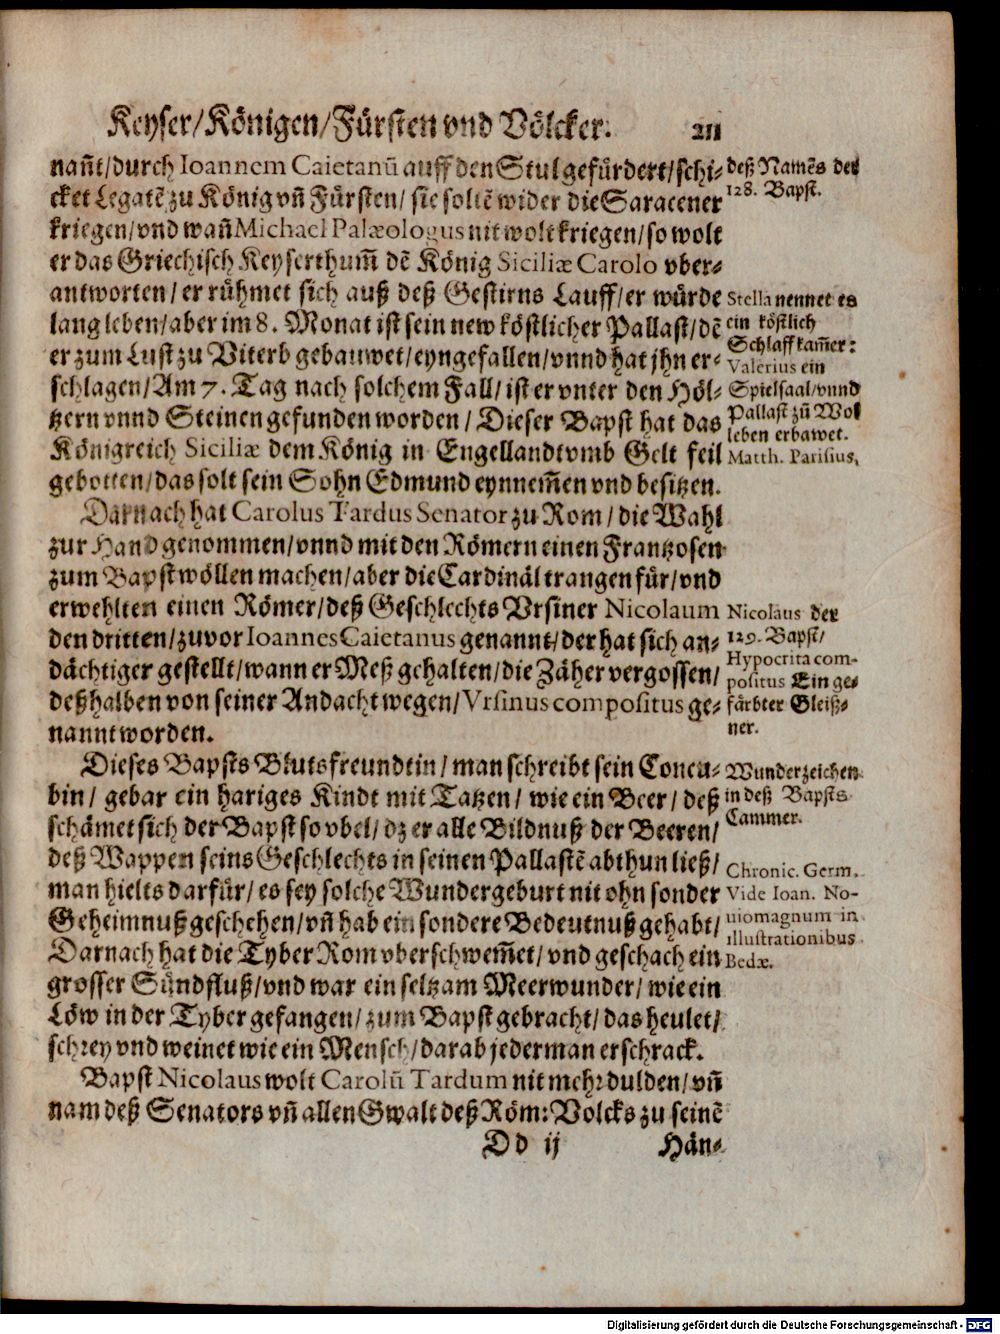 Keyser/Königen/Fürsten vnd Völcker. 211
nañt/durch Ioannem Caietanū auff den Stul gefürdert/schi-
cket Legatē zu König vñ Fürsten/ sie soltē wider die Saracener
kriegen/vnd wañ Michael Palæologus nit wolt kriegen/so wolt
er das Griechisch Keyserthum̃ dē König Siciliæ Carolo vber-
antworten/er rühmet sich auß deß Gestirns Lauff/er würde
lang leben/aber im 8. Monat ist sein new köstlicher Pallast/dē
er zum Lust zu Viterb gebauwet/eyngefallen/vnnd hat jhn er-
schlagen/Am 7. Tag nach solchem Fall/ist er vnter den Höl-
tzern vnnd Steinen gefunden worden/ Dieser Bapst hat das
Königreich Siciliæ dem König in Engellandt vmb Gelt feil
gebotten/das solt sein Sohn Edmund eynnem̃en vnd besitzen.
Darnach hat Carolus Tardus Senator zu Rom/die Wahl
zur Hand genommen/vnnd mit den Römern einen Frantzosen
zum Bapst wöllen machen/aber die Cardinäl trangen für/vnd
erwehlten einen Römer/deß Geschlechts Vrsiner Nicolaum
den dritten/zuvor Ioannes Caietanus genannt/der hat sich an-
dächtiger gestellt/wann er Meß gehalten/die Zäher vergossen/
deßhalben von seiner Andacht wegen/Vrsinus compositus ge-
nannt worden.
Dieses Bapsts Blutsfreundtin/man schreibt sein Concu-
bin/ gebar ein hariges Kindt mit Tatzen/ wie ein Beer/ deß
schämet sich der Bapst so vbel/dz er alle Bildnuß der Beeren/
deß Wappen seins Geschlechts in seinen Pallastē abthun ließ/
man hielts darfür/es sey solche Wundergeburt nit ohn sonder
Geheimnuß geschehen/vñ hab ein sondere Bedeutnuß gehabt/
Darnach hat die Tyber Rom vberschwem̃et/vnd geschach ein
grosser Sündfluß/vnd war ein seltzam Meerwunder/wie ein
Löw in der Tyber gefangen/zum Bapst gebracht/das heulet/
schrey vnd weinet wie ein Mensch/darab jederman erschrack.
Bapst Nicolaus wolt Carolū Tardum nit mehr dulden/vñ
nam deß Senators vñ allen Gwalt deß Röm: Volcks zu seinē
Dd ij Hän-
deß Namēs der
128. Bapst.
Stella nennet es
ein köstlich
Schlaffkam̃er:
Valerius ein
Spielsaal/vnnd
Pallast zū Wol
leben erbawet.
Matth. Parisius,
Nicolaus der
129. Bapst/
Hypocrita com-
positus Ein ge-
färbter Gleiß-
ner.
Wunderzeichen
in deß Bapsts
Cammer.
Chronic. Germ.
Vide Ioan. No-
uiomagnum in
illustrationibus
Bedæ.
Digitalisierung gefördert durch die Deutsche Forschungsgemeinschaft - DFG